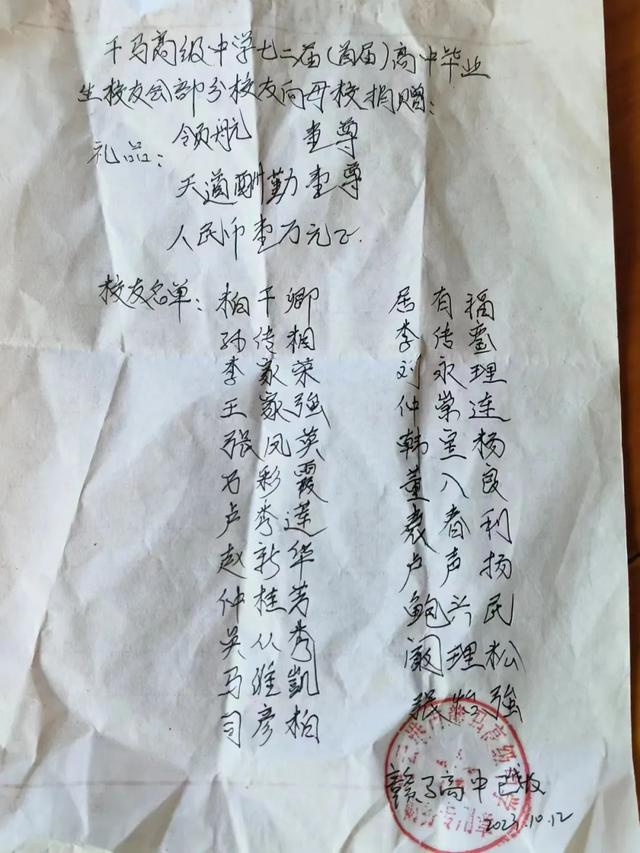 干马高级中学七二届(首届)高中毕业
生校友会部分校友向母校捐赠:
礼品: 领航 壹尊
天道酬勤 壹尊
人民币壹万元正.
校友名单: 柏干卿 居有福
孙传桐 李传
李家荣 刘永理
王家强 仲崇连
张凤英 韩宝杨
万彩霞 董入良
卢秀莲 袁春利
赵新华 卢声扬
仲桂芳 鲍兴民
吴从秀 阚理松
马维凯 张 强
司彦柏
赣马高中 已收
2023.10.12